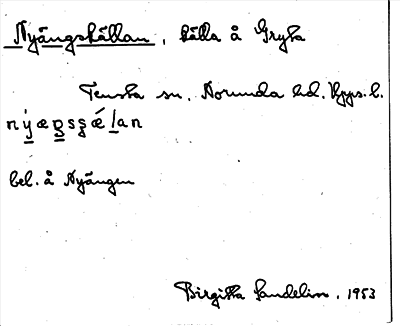 Nyängskällan, källa å Gryta
Tensta sn. Norunda hd. Upps. l.
nýæŋsʂǽlan
bel. å Nyängen
Birgitta Sandelin. 1953